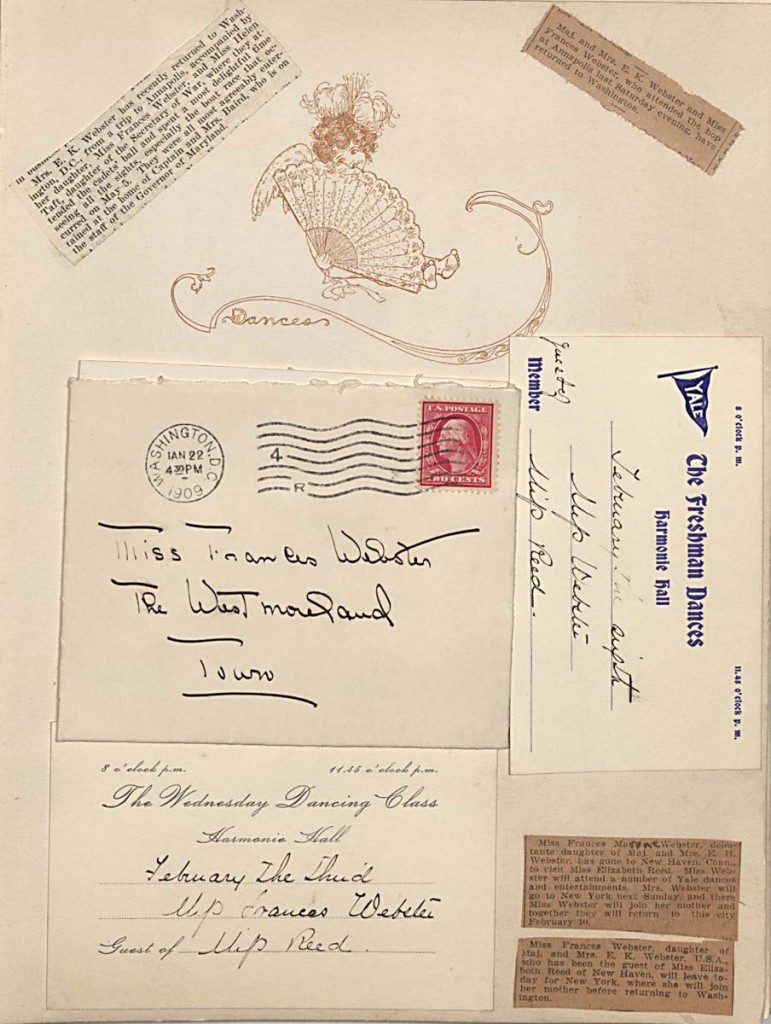 Mrs. E. K. Webster has recently returned to Wash-
ington, D.C., from a trip to Annapolis, accompanied by
her daughter, Miss Frances Webster, and Miss Helen
Taft, daughter of the Secretary of War, where they at-
tended the cadets' ball and spent a most delightful time
seeing all the sights, especially the boat race that oc-
curred on May 5. They were all most agreeably enter-
tained at the home of Captain and Mrs. Baird, who is on
the staff of the Governor of Maryland.
Maj. and Mrs. E. K. Webster and Miss
Frances Webster, who attended the hop
at Annapolis last Saturday evening, have
returned to Washington.
Dances
WASHINGTON, D.C.
JAN 22
4 30 PM
1909
4
R
U.S. POSTAGE
TWO CENTS
Miss Frances Webster
The Westmoreland
Town
8 o'clock p. m.
11.45 o'clock p. m.
YALE
The Freshman Dances
Harmonie Hall
February the sixth
Miss Webster
guest of
Member Miss Reed.
8 o'clock p.m.
11.45 o'clock p.m.
The Wednesday Dancing Class
Harmonie Hall
February The Third
Miss Frances Webster
Guest of Miss Reed.
Miss Frances Webster, debu-
tante daughter of Maj. and Mrs. E. H.
Webster, has gone to New Haven, Conn.,
to visit Miss Elizabeth Reed. Miss Web-
ster will attend a number of Yale dances
and entertainments. Mrs. Webster will
go to New York next Sunday, and there
Miss Webster will join her mother and
together they will return to this city
February 10.
Miss Frances Webster, daughter of
Maj. and Mrs. E. K. Webster, U.S.A.,
who has been the guest of Miss Eliza-
beth Reed of New Haven, will leave to-
day for New York, where she will join
her mother before returning to Wash-
ington.